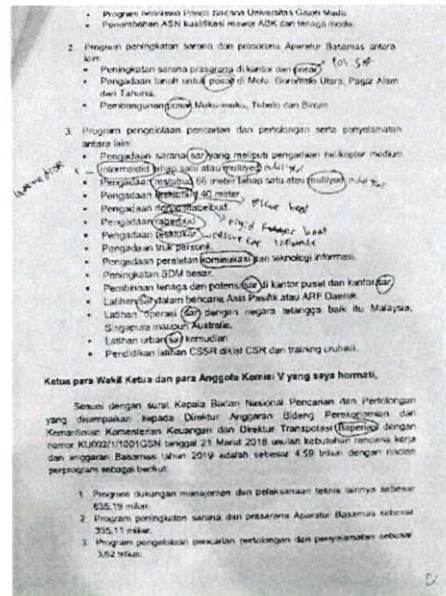 • Program beasiswa Pasca Sarjana Universitas Gajah Mada.
• Penambahan ASN kualifikasi rescuer ABK dan tenaga medis.
2. Program peningkatan sarana dan prasarana Aparatur Basarnas antara
lain:
• Peningkatan sarana prasarana di kantor dan posar
pos SAR
• Pengadaan tanah untuk posar di Molu, Gorontalo Utara, Pagar Alam
dan Tahuna.
• Pembangunan posar Muko-muko, Tobelo dan Bintan.
3. Program pengelolaan pencarian dan pertolongan serta penyelamatan
antara lain:
• Pengadaan sarana sar yang meliputi pengadaan helikopter medium
intermoidid tahap satu atau multiyed
• Pengadaan restubud 66 meter tahap satu atau multiyed
• Pengadaan 40 meter
rescue boat
• Pengadaan
rigid boat
• Pengadaan
• Pengadaan
rescue car
• Pengadaan truk personil.
• Pengadaan peralatan komunikasi dan teknologi informasi.
• Peningkatan SDM besar.
• Pembinaan tenaga dan potensi sar di kantor pusat dan kantor sar
• Latihan sar dalam bencana Asia Pasifik atau ARF Daerak.
• Latihan operasi sar dengan negara tetangga baik itu Malaysia,
Singapura maupun Australia.
• Latihan urban sar kemudian
• Pendidikan latihan CSSR diklat CSR dan training
Ketua para Wakil Ketua dan para Anggota Komisi V yang saya hormati,
Sesuai dengan surat Kepala Badan Nasional Pencarian dan Pertolongan
yang disampaikan kepada Direktur Anggaran Bidang Perekonomian dan
Kemaritiman Kementerian Keuangan dan Direktur Transpotasi Baperlgi dengan
nomor KU002/1/1001QSN tanggal 21 Maret 2018 usulan kebutuhan rencana kerja
dan anggaran Basarnas tahun 2019 adalah sebesar 4.59 triliun dengan rincian
perprogram sebagai berikut:
1. Program dukungan manajemen dan pelaksanaan teknis lainnya sebesar
635,19 miliar.
2. Program peningkatan sarana dan prasarana Aparatur Basarnas sebesar
335,11 miliar.
3. Program pengelolaan pencarian pertolongan dan penyelamatan sebesar
3,62 triliun.